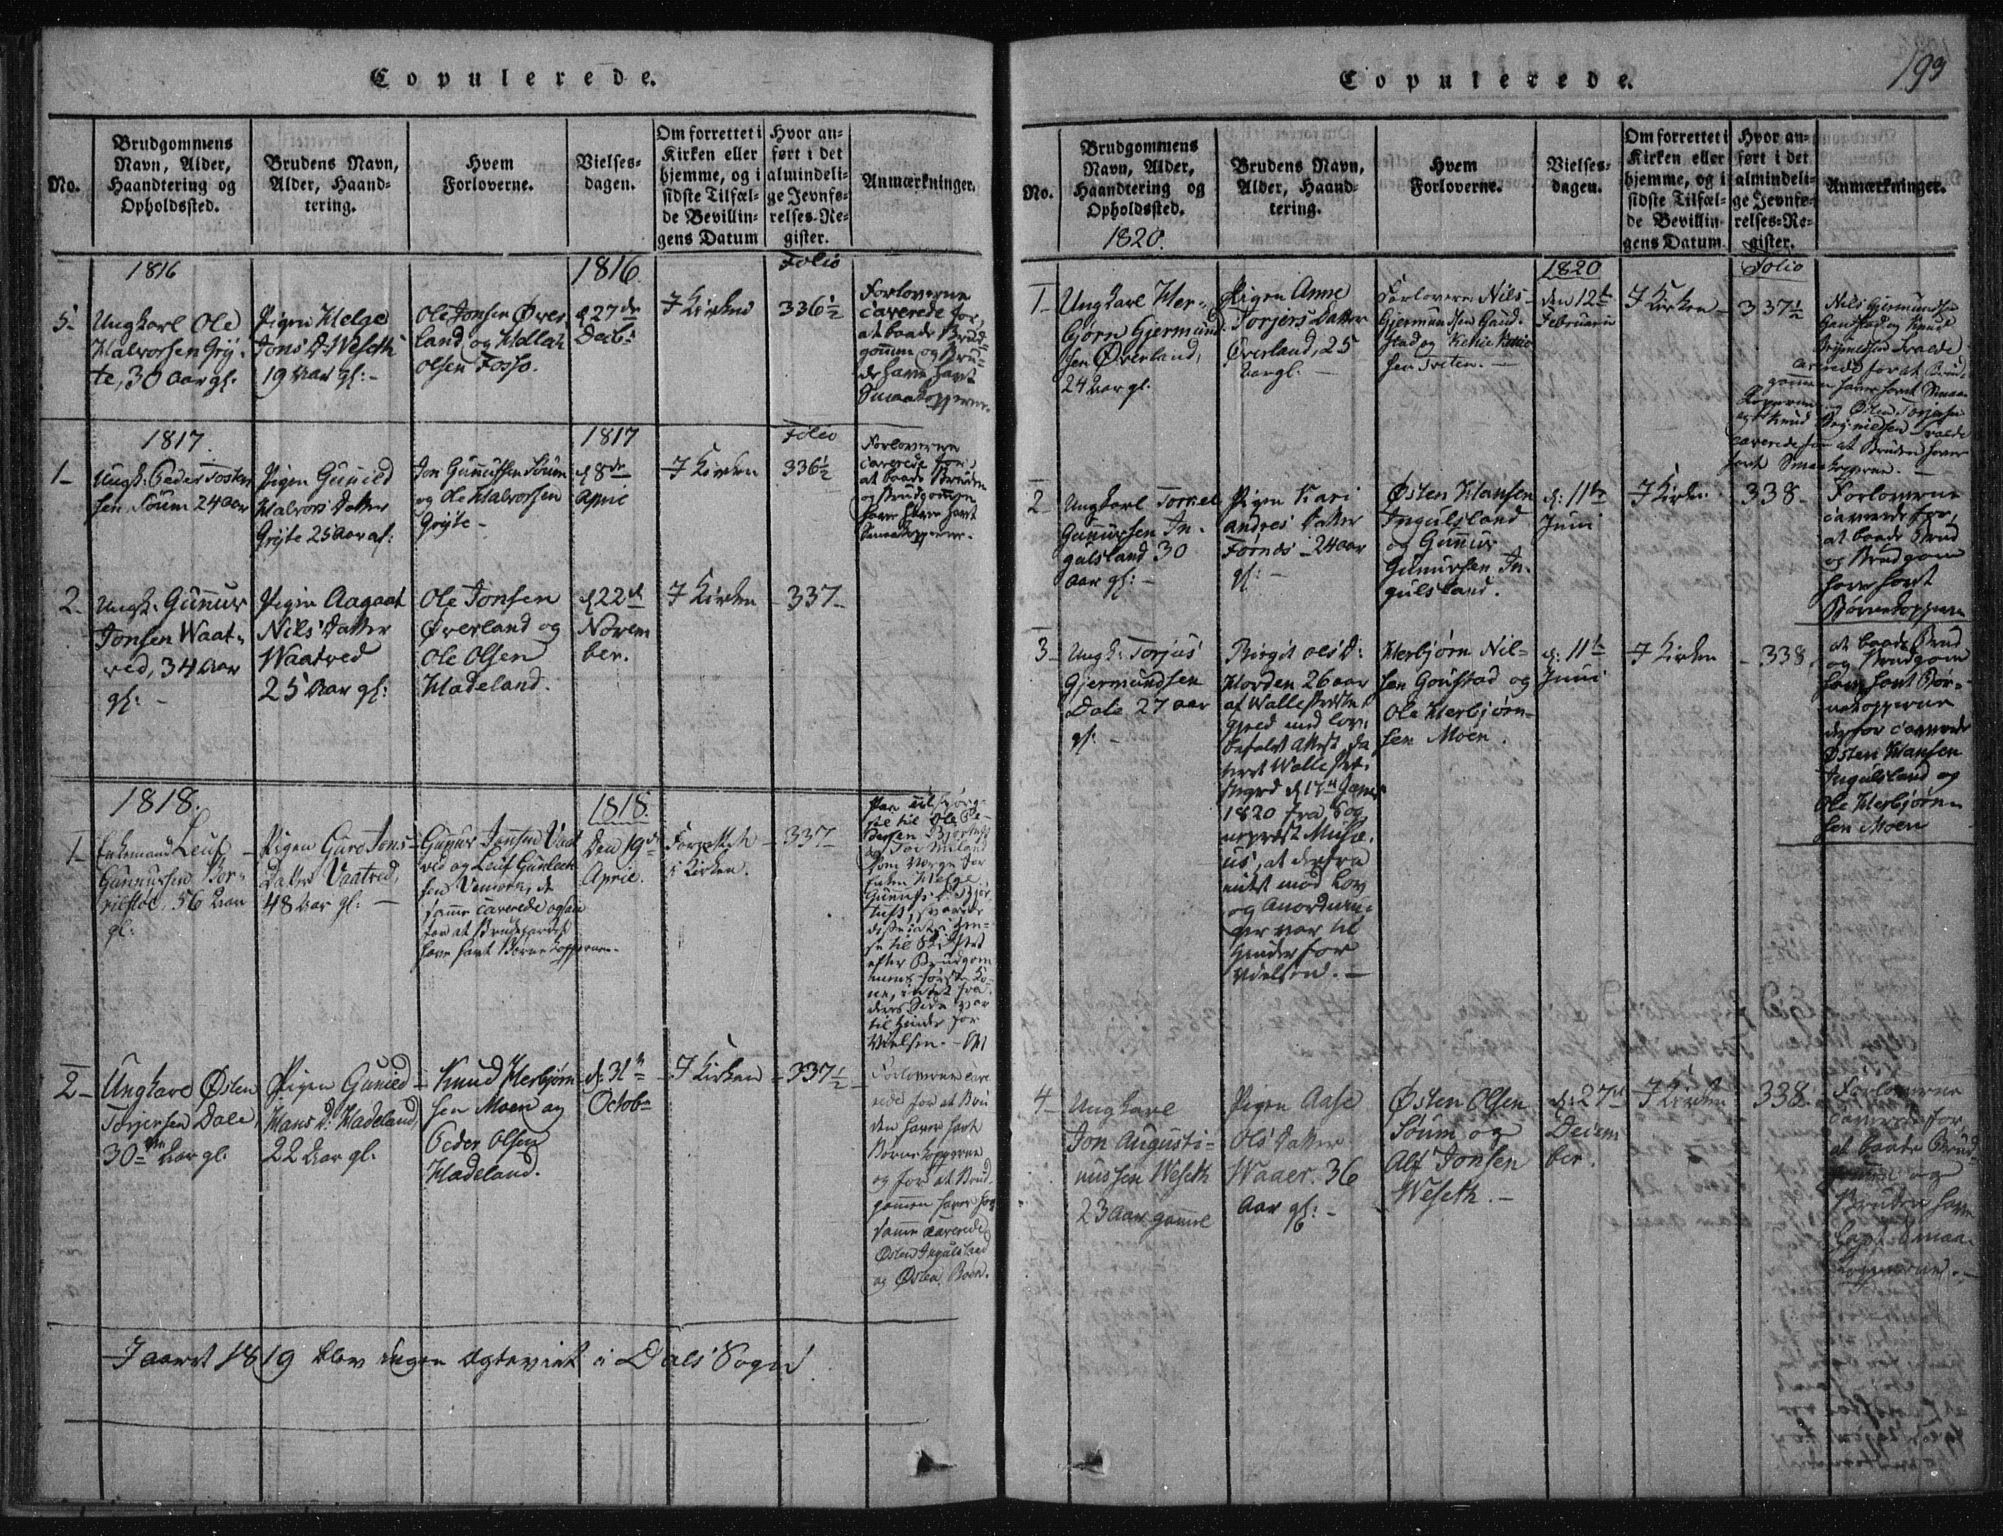 Copulerede.
No.
Brudgommens
Navn, Alder,
Haandtering og
Opholdssted.
Brudens Navn,
Alder, Haand-
tering.
Hvem
Forloverne.
Vielses-
dagen.
Om forrettet i
Kirken eller
hjemme, og i
sidste Tilfæl-
de Bevillin-
gens Datum
Hvor an-
ført i det
almindeli-
ge Jevnfø-
relses-Re-
gister.
Anmærkninger.
1816
1816.
Folio
5-
Ungkarl Ole
Halvorsen Gry-
te, 30 Aar gl.
Pigen Helge
Jons D. Weseth
19 Aar gl: -
Ole Jonsen Øver
land og Hellek
Olsen Fosso.
d 27de
Decb:
I Kirken
336½
Forloverne
caverede for,
at baade Brud-
gommen og Bru-
den have havt
Smaakopperne.
1817.
1817
Folio
1-
Ungk: Peder Tosten
sen, Søum 24 Aar
Pigen Gunild
Halvors Datter
Gryte 25 Aar gl:
Jon Gunnufsen Søum
og Ole Halvorsen
Gryte -
d 8de
April
I Kirken
336½
Forloverne
caverede for,
at baade Bruden
og Brudgommen
have havt
Smaakopperne.
2-
Ungk: Gunnur
Jonsen Waat-
ved, 34 Aar
gl: -
Pigen Aagaat
Nils' Datter
Waatved
25 Aar gl:
Ole Jonsen
Øverland og
Ole Olsen
Hadeland.
d 22d
Novem
ber.
I Kirken
- 337-
1818.
1818.
1-
Enkemand Leuf
Gunnufsen
56 Aar
gl.
Pigen Guro Jons-
Datter Vaatved,
48 Aar gl: -
Gunnr Jonsen Vaat
ved og Leuf Gunleik
sen Vemork, de
samme caverede ogsaa
for at Brudefolket
have havt Børnekopperne.
Den 19de
April.
Forrettet
i Kirken.
- 337-
til Ole Pe-
dersen
som Værge for
Enken Helge
svarede
efter Brudgom
mens første Ko-
ne, intet fra
deres Side var
til Hinder for
Vielsen. -
2-
Ungkarl Østen
Torjersen Dale,
30 Aar gl.
Pigen Gunild
Hans D: Hadeland,
22 Aar gl.
Knud Herbjørn
sen Moen og
Peder Olsen
Hadeland.
d: 31te
Octobr
I Kirken
- 337½ -
Forloverne cave
rede for at Bru
den have havt
Børnekopperne
og for at Brud
gommen have hav
samme caverede
Østen Ingulsland
og Østen Boen.
I aaret 1819 blev ingen Ægteviet i Dals Sogn
193
Copulerede.
No.
Brudgommens
Navn, Alder,
Haandtering og
Opholdssted.
1820.
Brudens Navn,
Alder, Haand-
tering.
Hvem
Forloverne.
Vielses-
dagen.
Om forrettet i
Kirken eller
hjemme, og i
sidste Tilfæl-
de Bevillin-
gens Datum
Hvor an-
ført i det
almindeli-
ge Jevnfø-
relses-Re-
gister.
Anmærkninger.
1820
Folio
1-
Ungkarl Her-
bjørn Gjermund
sen Øverland,
24 Aar gl.
Pigen Anne
Torjers Datter
Øverland, 25
Aar gl. -
Forlovere Nils
Gjermundsen Gaud-
stad og
sen Tveten. -
den 12te
Februarii
I Kirken
- 337½
Nils Gjermundsen
Gaustad og Knud
caverede for at Brud-
gommen have havt Smaa-
kopperne og Østen Torjersen
og Knud
caverede for at Bruden have
havt Smaakopperne. -
2-
Ungkarl Tarkel
Gunnursen In-
gulsland 30
Aar gl: -
Pigen Kari
Andres Datter
Førnes - 24 Aar
gl: -
Østen Hansen
Ingulsland
og Gunnur
Gunursen In-
gulsland.
d: 11te
Juni
I Kirken
- 338-
Forloverne
caverede for,
at baade Brud
og Brudgom
have havt
Børnekopperne
3-
Ungk: Torjus
Gjermundsen
Dale 27 Aar
gl: -
Birgit Ols D:
Horden 26 Aar
af Walle Præste-
gjeld med lov-
befalet Attest, da
teret Walle Præ-
stegrd d 17de
1820 fra Sog-
nepræst Musæ-
us, at derfra
intet mod Lov
og Anordnin-
ger var til
Hinder for
Vielsen. -
Herbjørn Nil-
sen Goustad og
Ole Herbjørn-
sen Moen.
d: 11te
Juni
I Kirken
- 338.
at baade Brud
og Brudgom
have havt Bør-
nekopperne
derfor caverede
Østen Hansen
Ingulsland og
Ole Herbjørn
sen Moen
4-
Ungkarl
Jon Augusti-
nussen Weseth
23 Aar gamle
Pigen Aase
Ols' Datter
Waaer. 36
Aar gl: -
Østen Olsen
Søum og
Alf Jonsen
Weseth. -
d: 27de
Decem
ber.
I Kirken
- 338-
Forloverne
caverede for,
at baade Brud-
gomme og
Bruden have
havt Smaa-
kopperne. -